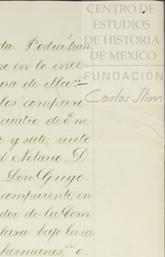 CENTRO DE
ESTUDIOS
DE HISTORIA
DE MEXICO
FUNDACIÓN
Carlos Slim
da Pedia tran
no en lo inser
ra de ella:=
los compare
cuatro de Ene
y siete, ante
Notario D.
Don Grego
compareciente, en
dor de la Com
clara bajo la ra
hermanos," e